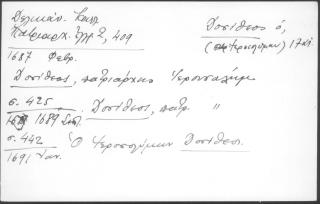 Δελικάν. Καλλ.
Πατριαρχ. Ἐγγρ. 2, 409
Δοσίθεος ὁ,
(Ἱεροσολύμων) 17 αἰ.
1687 Φεβρ.
Δοσίθεος, πατριάρχης Ἱεροσολύμων
σ. 425. Δοσίθεος, πατρ. "
1689 Σεπτ.
σ. 442 Ὁ Ἱεροσολύμων Δοσίθεος.
1691 Ἰαν.